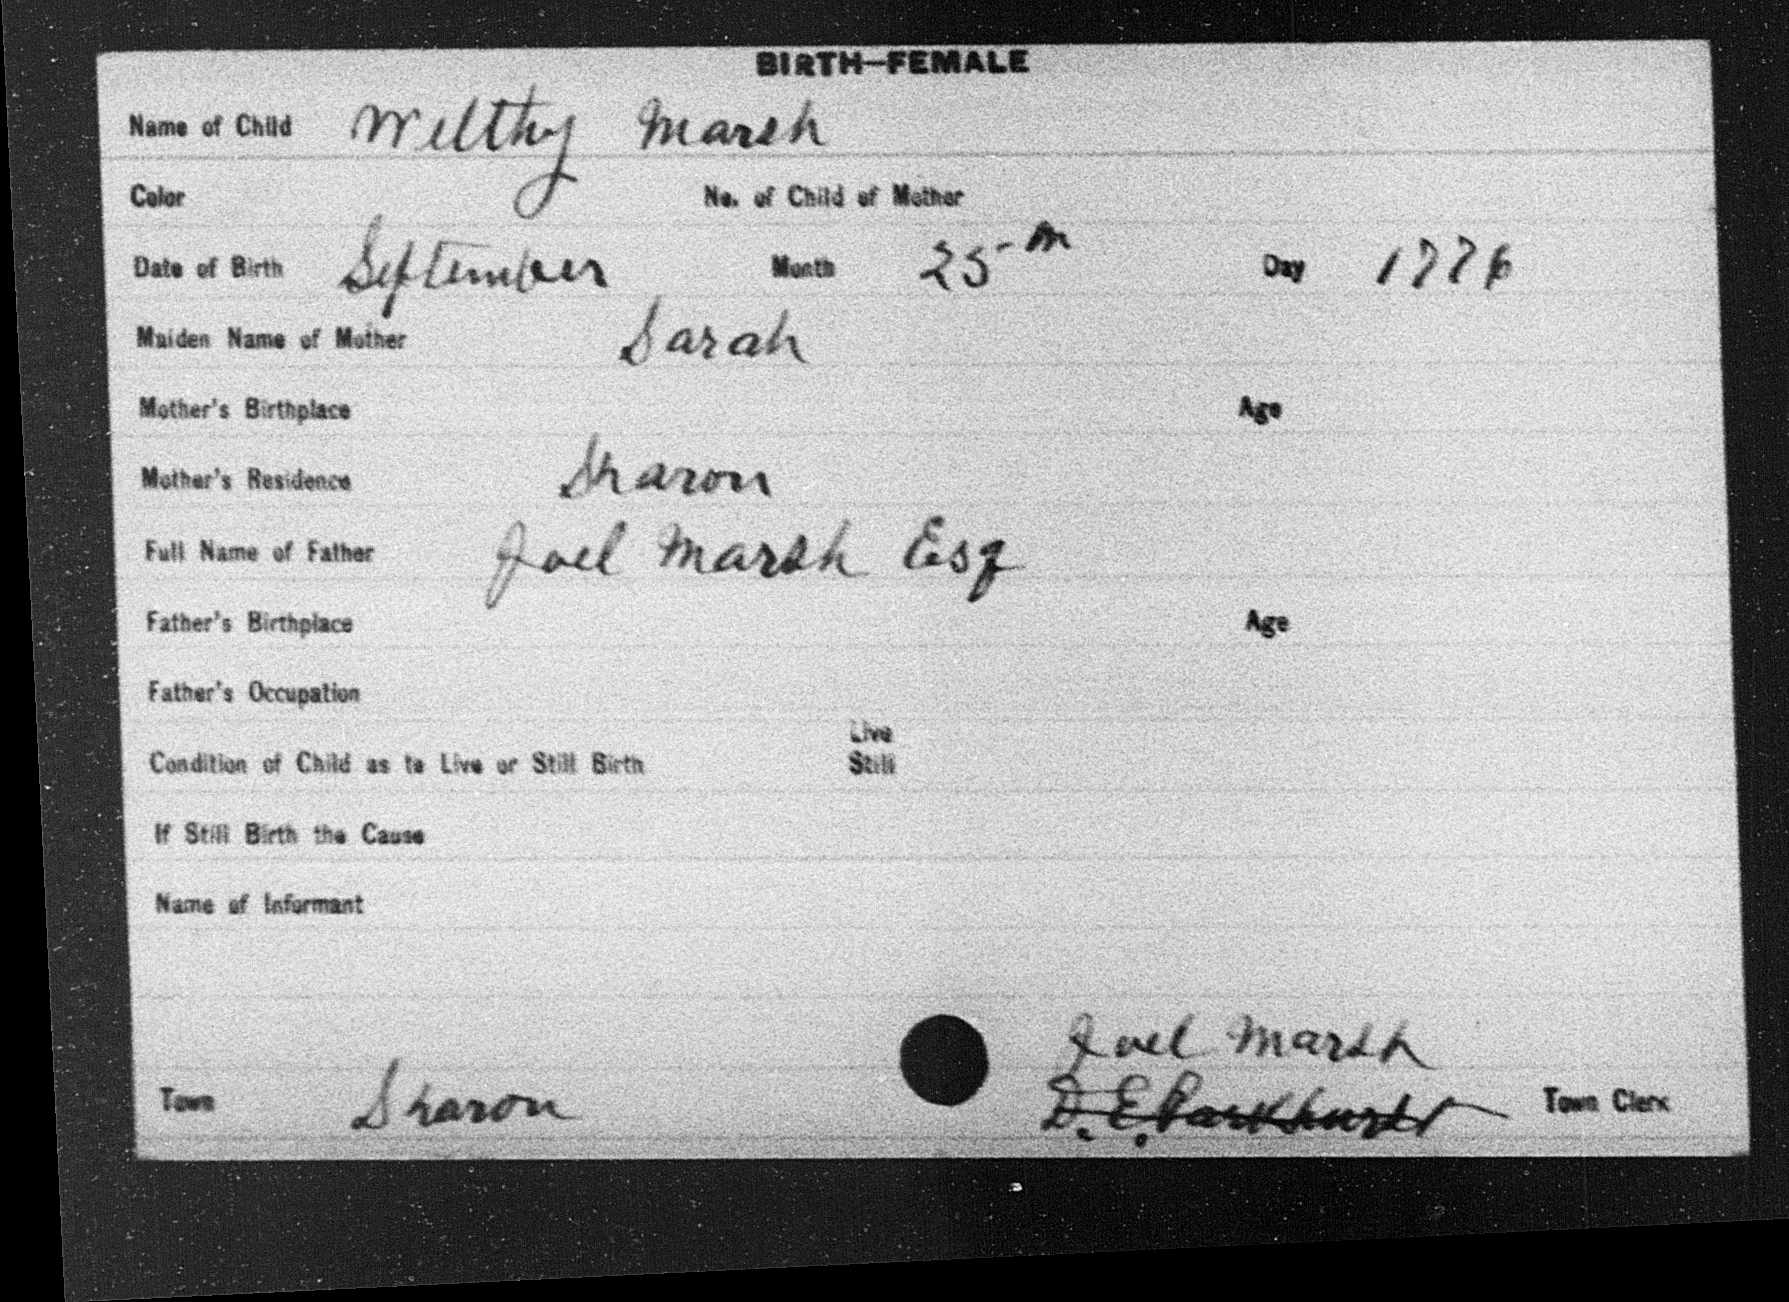 BIRTH—FEMALE
Name of Child Welthy Marsh
Color No. of Child of Mother
Date of Birth September Month 25-th Day 1776
Maiden Name of Mother Sarah
Mother's Birthplace Age
Mother's Residence Sharon
Full Name of Father Joel Marsh Esq
Father's Birthplace Age
Father's Occupation
Live
Condition of Child as to Live or Still Birth Still
If Still Birth the Cause
Name of Informant
Joel Marsh
Town Sharon D. E. Parkhurst Town Clerk